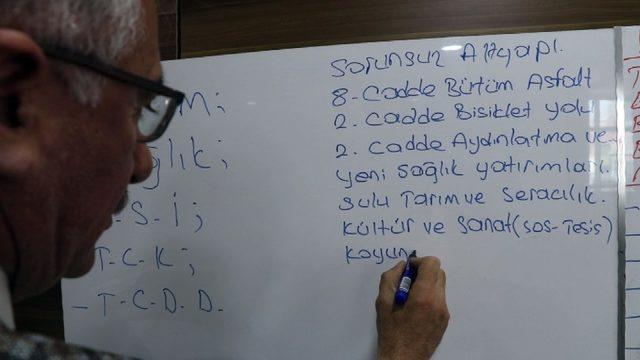 Sorunsuz Altyapı.
8- Cadde Bütüm Asfalt
2. Cadde Bisiklet yolu
2. Cadde Aydınlatma ve
yeni Sağlık yatırımları.
Sulu Tarım ve Seracılık.
Kültür ve Sanat (Sos-Tesis)
Koyun
ğlık;
S-İ;
T-C-K;
- T-C-D.D.